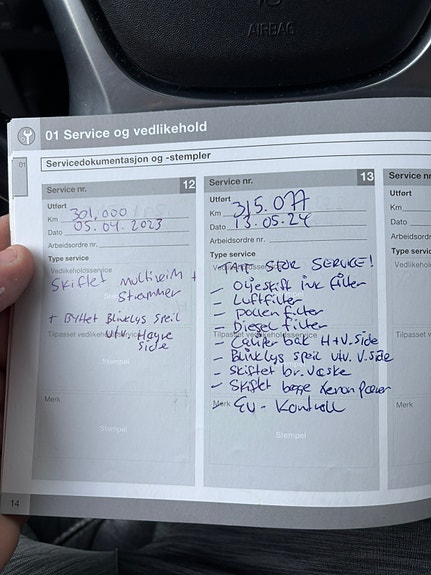 AIRBAG
01 Service og vedlikehold
01
Servicedokumentasjon og -stempler
Service nr. 12
Utført
Km 301,000
Dato 05.04.2023
Arbeidsordre nr.
Type service
Vedlikeholdsservice
Skiftet multireim +
Strammer
+ Byttet Blinklys speil
Tilpasset vedlikeholdsservice
utv. Høyre
side
Stempel
Merk
Stempel
14
Service nr. 13
Utført
Km 315.077
Dato 13.05.24
Arbeidsordre nr.
Type service
TATT STOR SERVICE!
Vedlikeholdsservice
- Oljeskift ink filter
- Luftfilter
- pollen filter
- Diesel filter
Tilpasset vedlikeholdsservice
- Caliper bak H+V. side
- Blinklys speil utv. V. side
- Skiftet br. væske
- Skiftet begge Xenon pærer
Merk
- EU - Kontroll
Stempel
Service nr.
Utført
Km
Dato
Arbeidsordre
Type service
Vedlikeh
Tilpasse
Merk